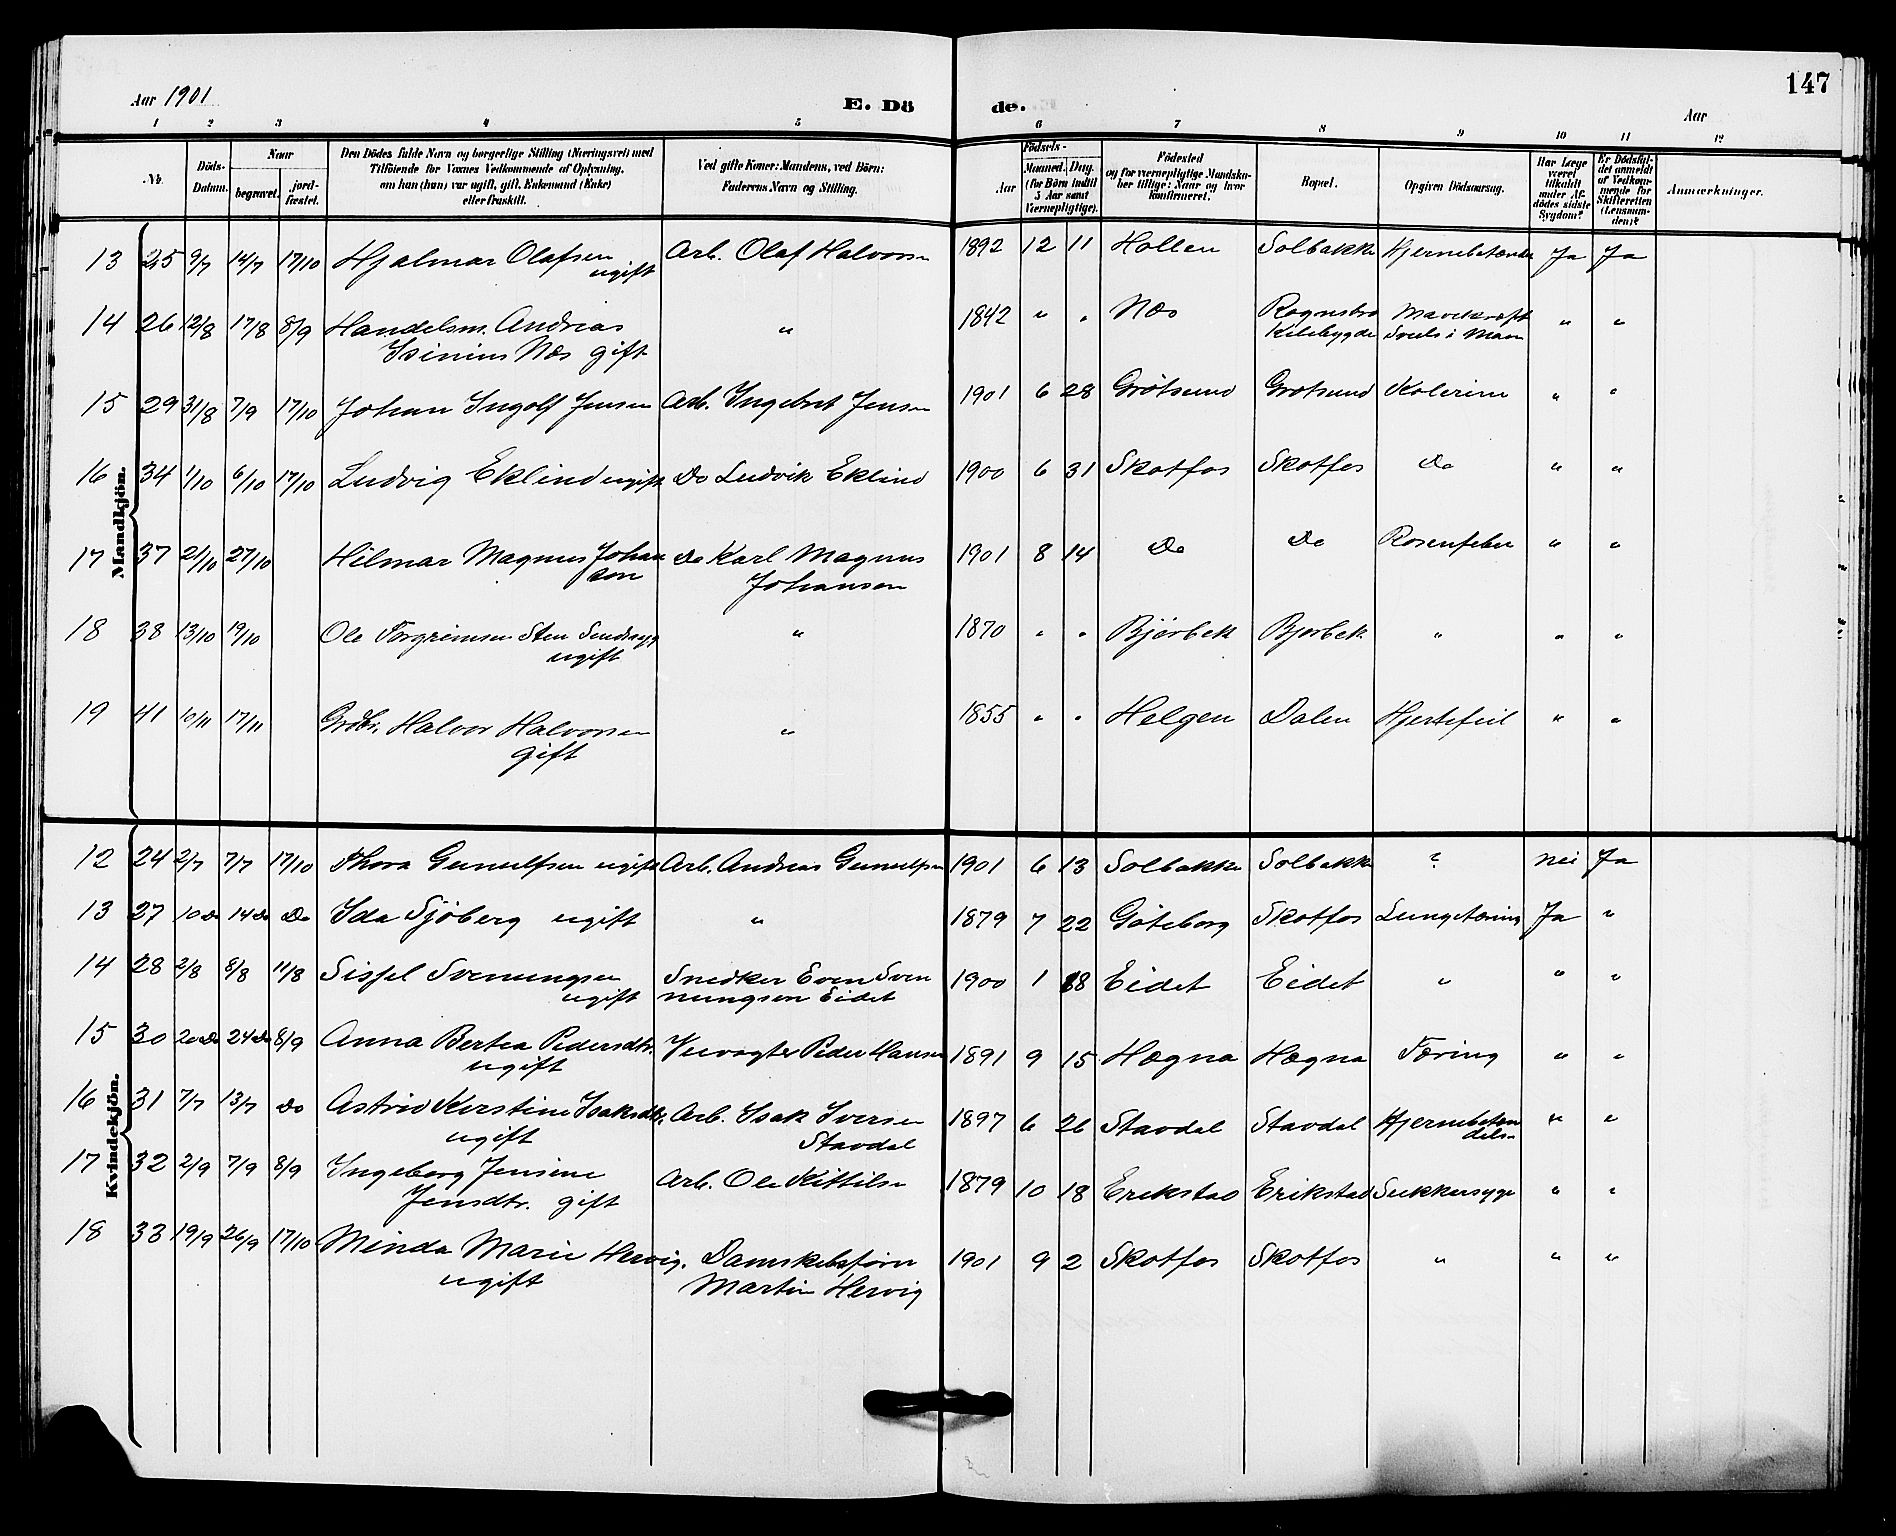 147
Aar 1901 E. Dö de. Aar
1 2 3 4 5 6 7 8 9 10 11 12
Nr. Döds-Datum. Naar begravet. jordfæstet. Den Dödes fulde Navn og borgerlige Stilling (Næringsvei) med Tilföiende for Voxnes Vedkommende af Oplysning, om han (hun) var ugift, gift, Enkemand (Enke) eller fraskilt. Ved gifte Koner: Mandens, ved Börn: Faderens Navn og Stilling. Födsels- Aar Maaned. Dag. (for Börn indtil 5 Aar samt Værnepligtige). Födested og for værnepligtige Mandskaber tillige: Naar og hvor konfirmeret. Bopæl. Opgiven Dödsaarsag. Har Læge været tilkaldt under Afdödes sidste Sygdom? Er Dödsfaldet anmeldt af Vedkommende for Skifteretten (Lensmanden)? Anmærkninger.
Mandkjön.
13 25 9/7 14/7 17/10 Hjalmar Olafsen Arb. Olaf Halvorsen 1892 12 11 Hollen Solbakke Hjernebetændelse Ja Ja
ugift
14 26 12/8 17/8 8/9 Handelsm. Andreas " 1842 " " Næs Rognsbro Mavekræft " "
Isinius Næs gift Kilebygden i Maven
15 29 31/8 7/9 17/10 Johan Ingolf Jensen Arb. Ingebret Jensen 1901 6 28 Grötsund Grotsund Kolerine " "
16 34 1/10 6/10 17/10 Ludvig Eklind ugift Do Ludvik Eklind 1900 6 31 Skotfos Skotfos Do " "
17 37 21/10 27/10 Hilmar Magnus Johan Do Karl Magnus 1901 8 14 Do Do Rosenfeber " "
sen Johansen
18 38 13/10 19/10 Ole Torgrimsen Sten Sindssyg " 1870 " " Bjørbek Bjorbek " " "
ugift
19 41 10/11 17/11 Grdbr. Halvor Halvorsen " 1855 " " Helgen Dalen Hjertefeil " "
gift
Kvindekjön.
12 24 2/7 7/7 17/10 Thora Gunulfsen ugift Arb. Andreas Gunulfsen 1901 6 13 Solbakke Solbakke ? nei Ja
13 27 10 Do 14 Do Do Ida Sjöberg ugift " 1879 7 22 Göteborg Skotfos Lungetæring Ja "
14 28 2/8 8/8 11/8 Sissel Svenungsen Snedker Even Sven 1900 1 Eidet Eidet " " "
ugift nungsen Eidet
15 30 20 Do 24 Do 8/9 Anna Bertea Pedersdtr. Veivogter Peder Hansen 1891 9 15 Hægna Hægna Tæring " "
ugift
16 31 7/7 13/7 Do Astrid Kirstine Isaksdtr. Arb. Isak Iversen 1897 6 26 Stavdal Stavdal Hjernebeten " "
ugift Stavdal delse
17 32 2/9 7/9 8/9 Ingeborg Jensine Arb. Ole Kittilsen 1879 10 18 Erikstad Erikstad Sukkersyge " "
Jensdtr. gift
18 33 19/9 26/9 17/10 Minda Marie Hervig. Damskibsförer 1901 9 2 Skotfos Skotfos " " "
ugift Martin Hervig